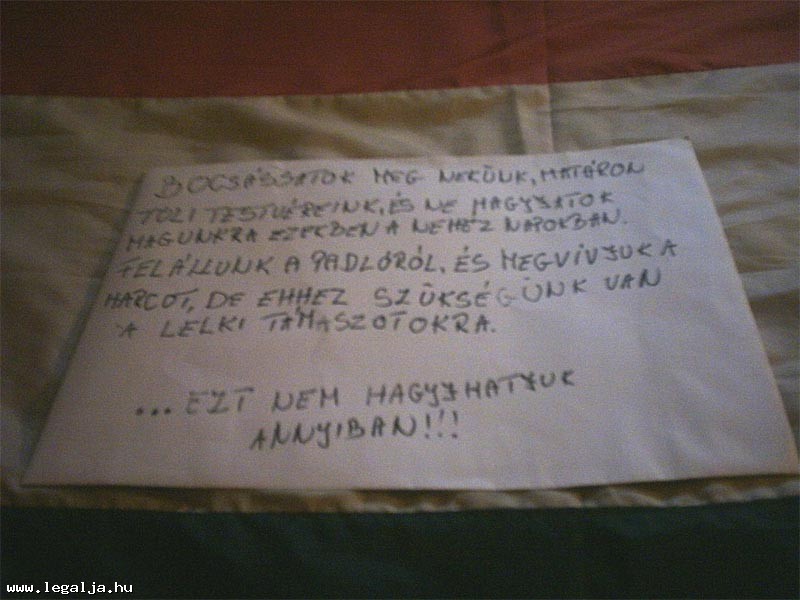 BOCSÁSSATOK MEG NEKÜNK, HATÁRON
TÚLI TESTVÉREINK, ÉS NE HAGYJATOK
MAGUNKRA EZEKBEN A NEHÉZ NAPOKBAN.
FELÁLLUNK A PADLÓRÓL, ÉS MEGVÍVJUK A
HARCOT, DE EHHEZ SZÜKSÉGÜNK VAN
A LELKI TÁMASZOTOKRA.
... EZT NEM HAGYJHATJUK
ANNYIBAN!!!
www.legalja.hu